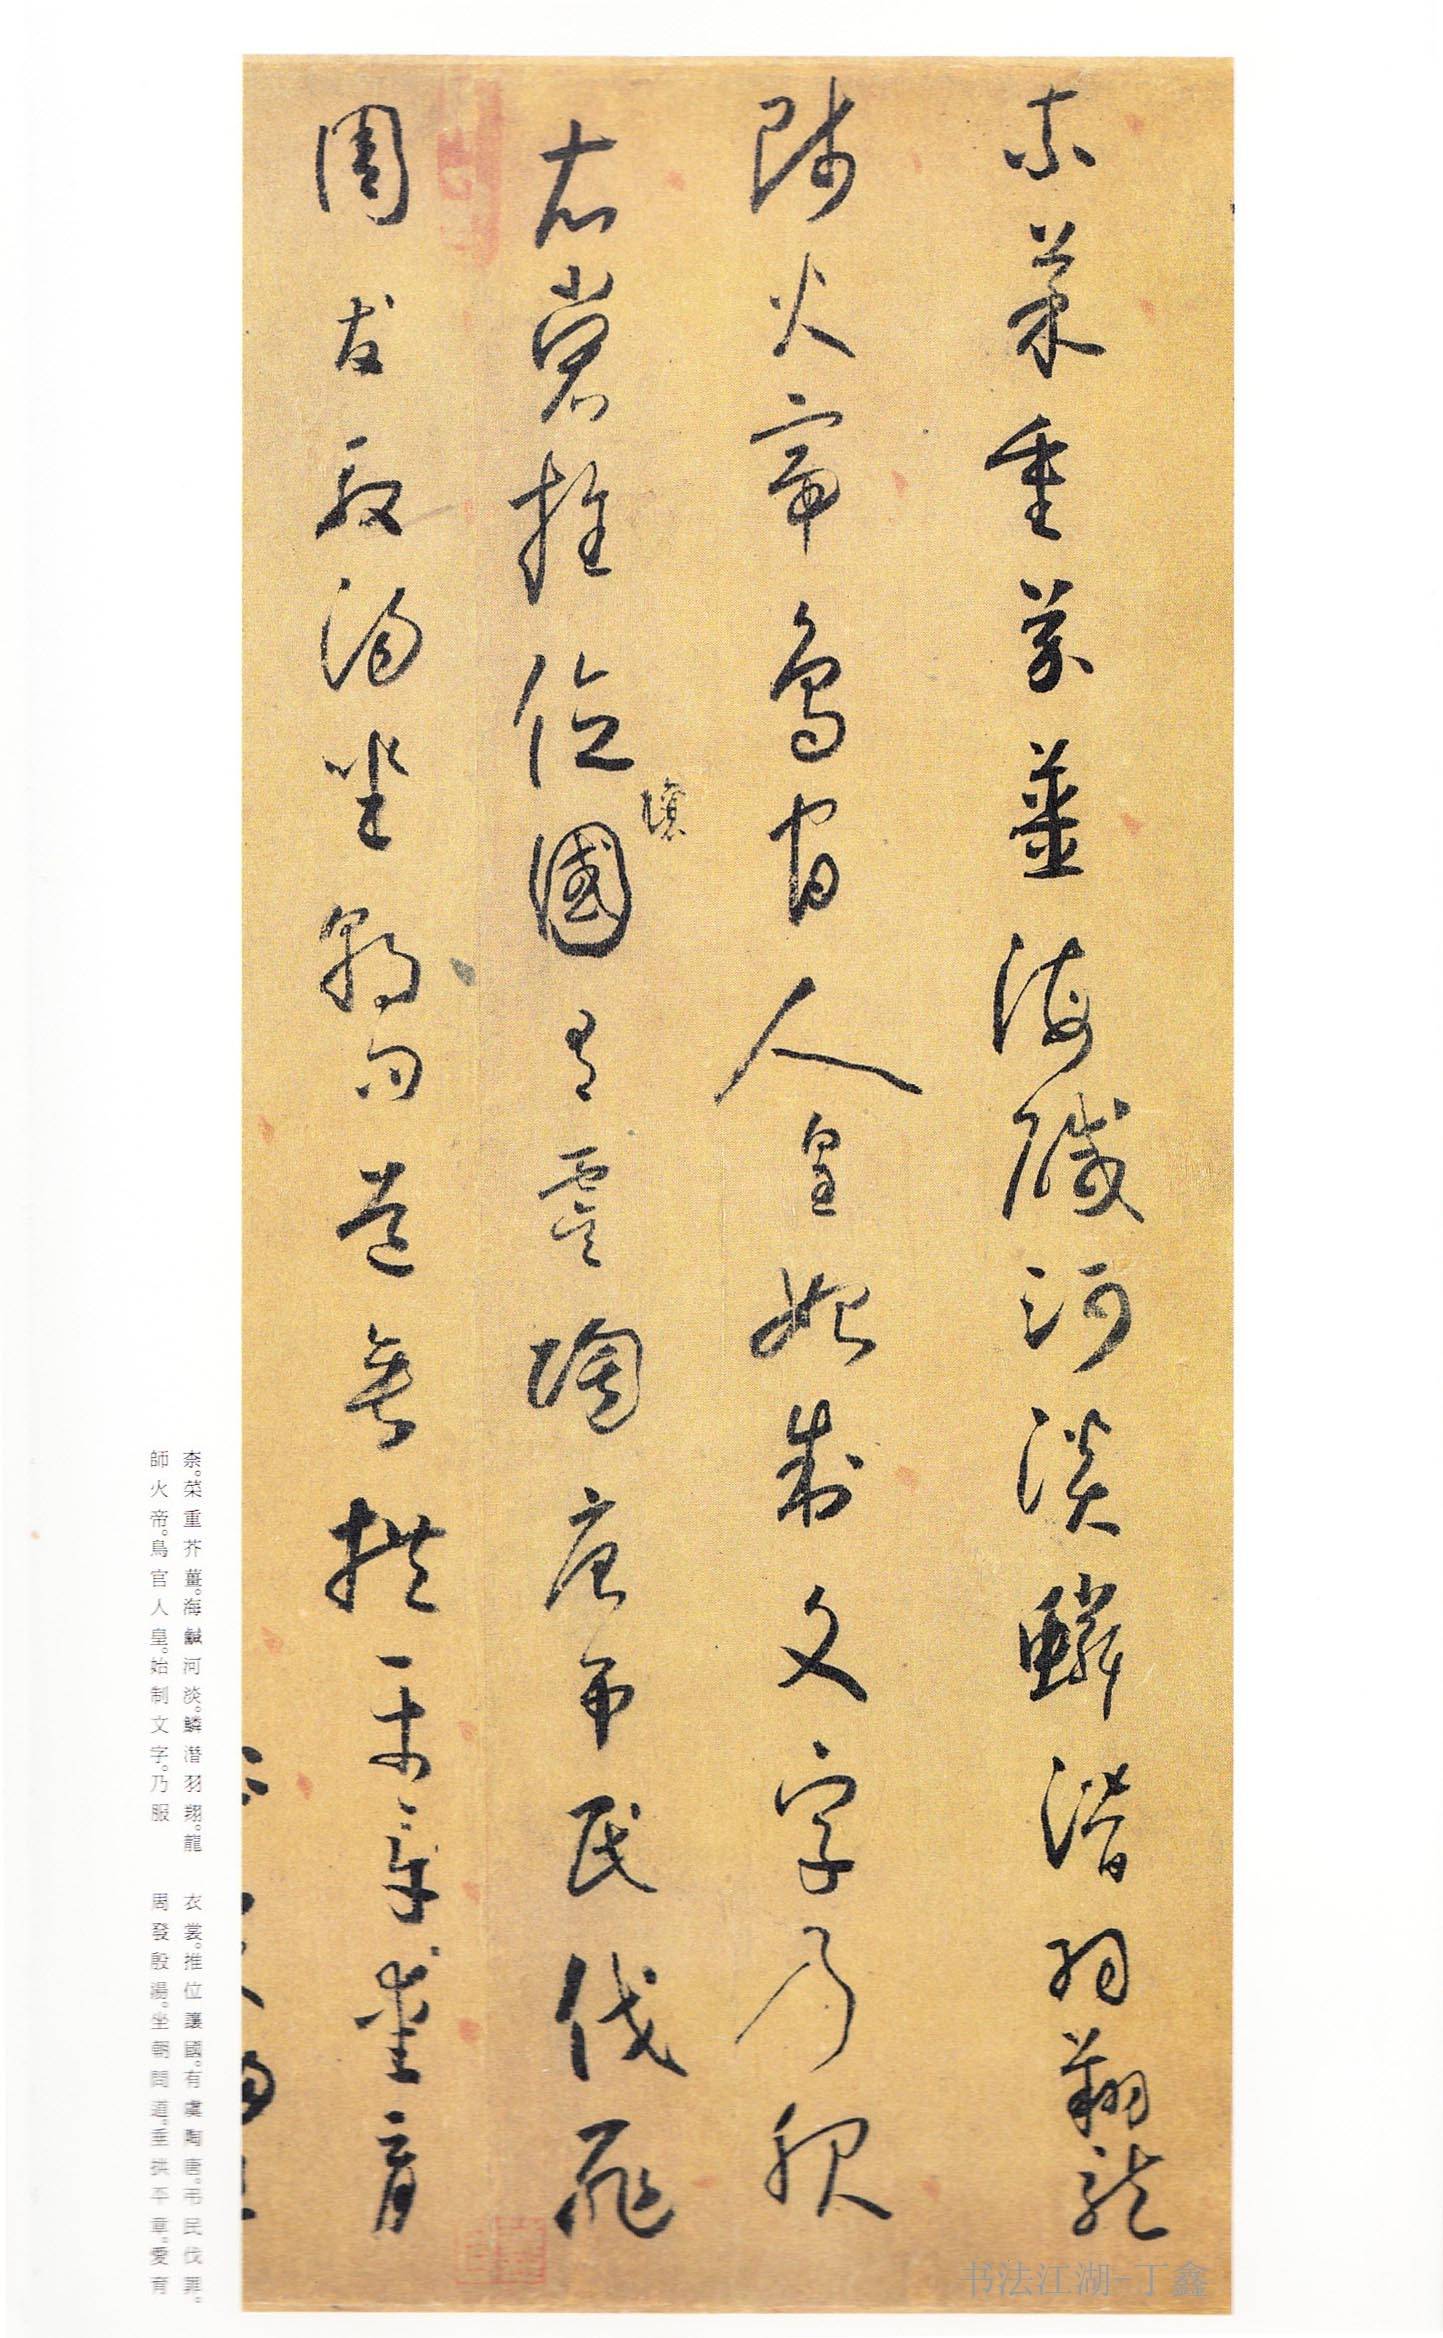 柰菜重芥薑海鹹河淡鱗潛羽翔龍
師火帝鳥官人皇始制文字乃服
衣裳推位讓國有虞陶唐弔民伐罪
周發殷湯坐朝問道垂拱平章愛育
柰。菜重芥薑。海鹹河淡。鱗潛羽翔。龍
師火帝。鳥官人皇。始制文字。乃服
衣裳。推位讓國。有虞陶唐。弔民伐罪。
周發殷湯。坐朝問道。垂拱平章。愛育
书法江湖-丁鑫